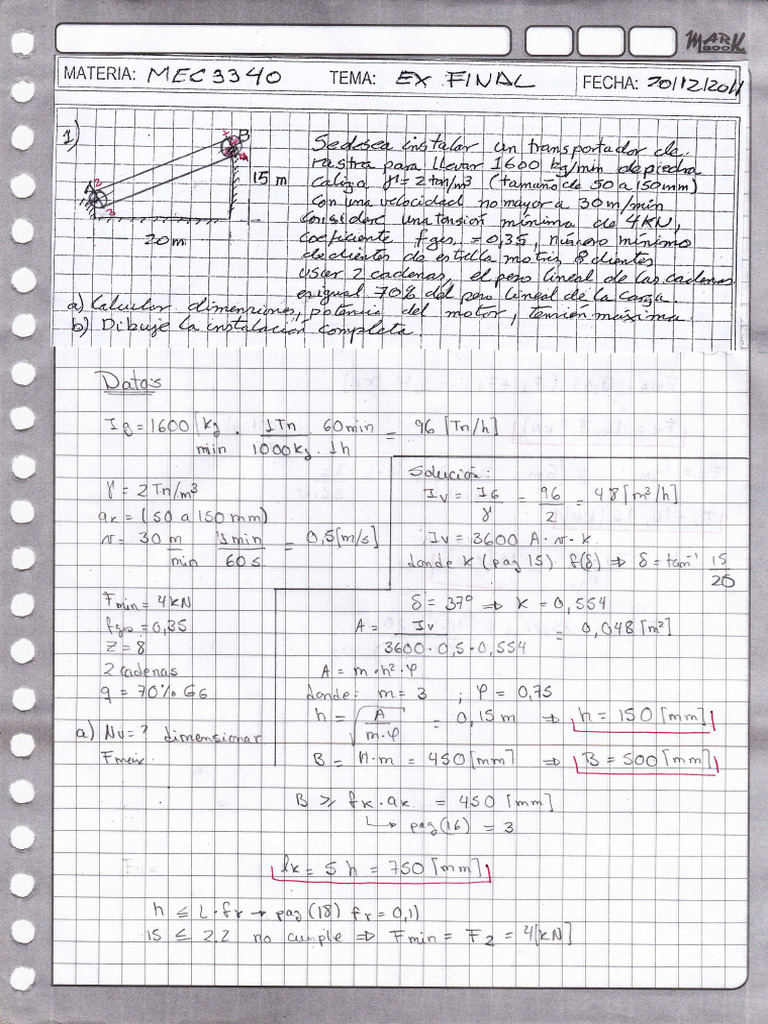 MARK
BOOK
MATERIA: MEC3340 TEMA: EX FINAL FECHA: 20/12/2011
1)
B
A
2
3
15 m
20 m
Se desea instalar un transportador de
rastra para llevar 1600 kg/min de piedra
caliza γ = 2 ton/m³ (tamaño de 50 a 150mm)
con una velocidad no mayor a 30 m/min
considere una tensión mínima de 4KN,
coeficiente fgs = 0,35, número mínimo
de dientes de estrella motriz 8 dientes
usar 2 cadenas, el peso lineal de las cadenas
es igual 70% del peso lineal de la carga.
a) Calcular dimensiones, potencia del motor, tensión máxima.
b) Dibuje la instalación completa.
Datos
IG = 1600 [kg/min] · 1Tn/1000kg · 60min/1h = 96 [Tn/h]
γ = 2 Tn/m³
ak = (50 a 150 mm)
v = 30 m/min · 1min/60s = 0,5[m/s]
Fmin = 4KN
fgs = 0,35
Z = 8
2 cadenas
q = 70% GG
a) Nv = ? dimensionar
Fmax
Solución:
Iv = IG/γ = 96/2 = 48 [m³/h]
Iv = 3600 A · v · k
donde k (pag 15) f(δ) ⇒ δ = tan⁻¹ 15/20
δ = 37° ⇒ k = 0,554
A = Iv/3600·0,5·0,554 = 0,048 [m²]
A = m · h² · φ
donde: m = 3 ; φ = 0,75
h = √A/m·φ = 0,15 m ⇒ h = 150 [mm]
B = h · m = 450 [mm] ⇒ B = 500 [mm]
B ≥ fk · ak = 450 [mm]
↳ pag (16) = 3
lk = 5 h = 750 [mm]
h ≤ L · fr → pag (18) fr = 0,1)
15 ≤ 2,2 no cumple ⇒ Fmin = F2 = 4[KN]